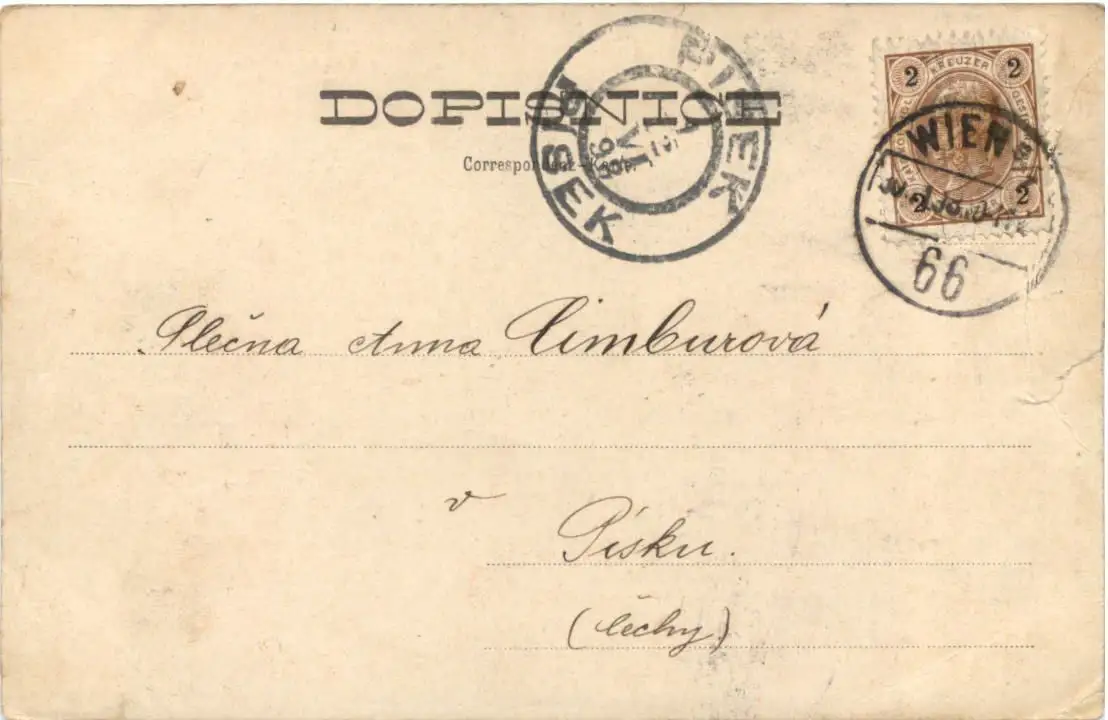 DOPISNICE
Correspondenz-Karte.
PISEK
PÍSEK
2 KREUZER 2
2 2
WIEN
66
Slečna Anna Cimburová
v
Písku.
(Čechy)